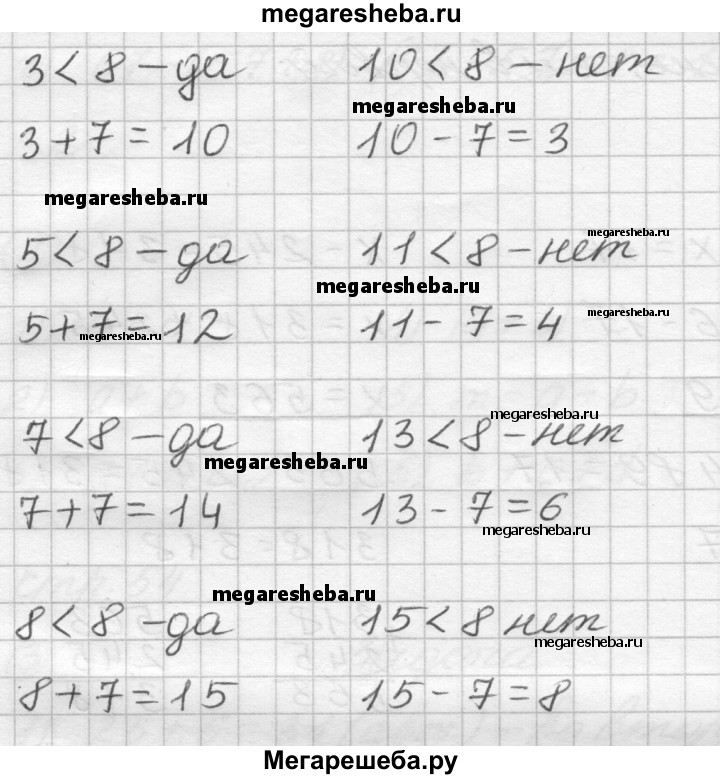 megaresheba.ru
3 < 8 – да 10 < 8 – нет
megaresheba.ru
3 + 7 = 10 10 - 7 = 3
megaresheba.ru
megaresheba.ru
5 < 8 – да 11 < 8 – нет
megaresheba.ru
5 + 7 = 12 11 - 7 = 4
megaresheba.ru
megaresheba.ru
megaresheba.ru
7 < 8 – да 13 < 8 – нет
megaresheba.ru
7 + 7 = 14 13 - 7 = 6
megaresheba.ru
megaresheba.ru
8 < 8 – да 15 < 8 нет
megaresheba.ru
8 + 7 = 15 15 - 7 = 8
Мегарешеба.ру